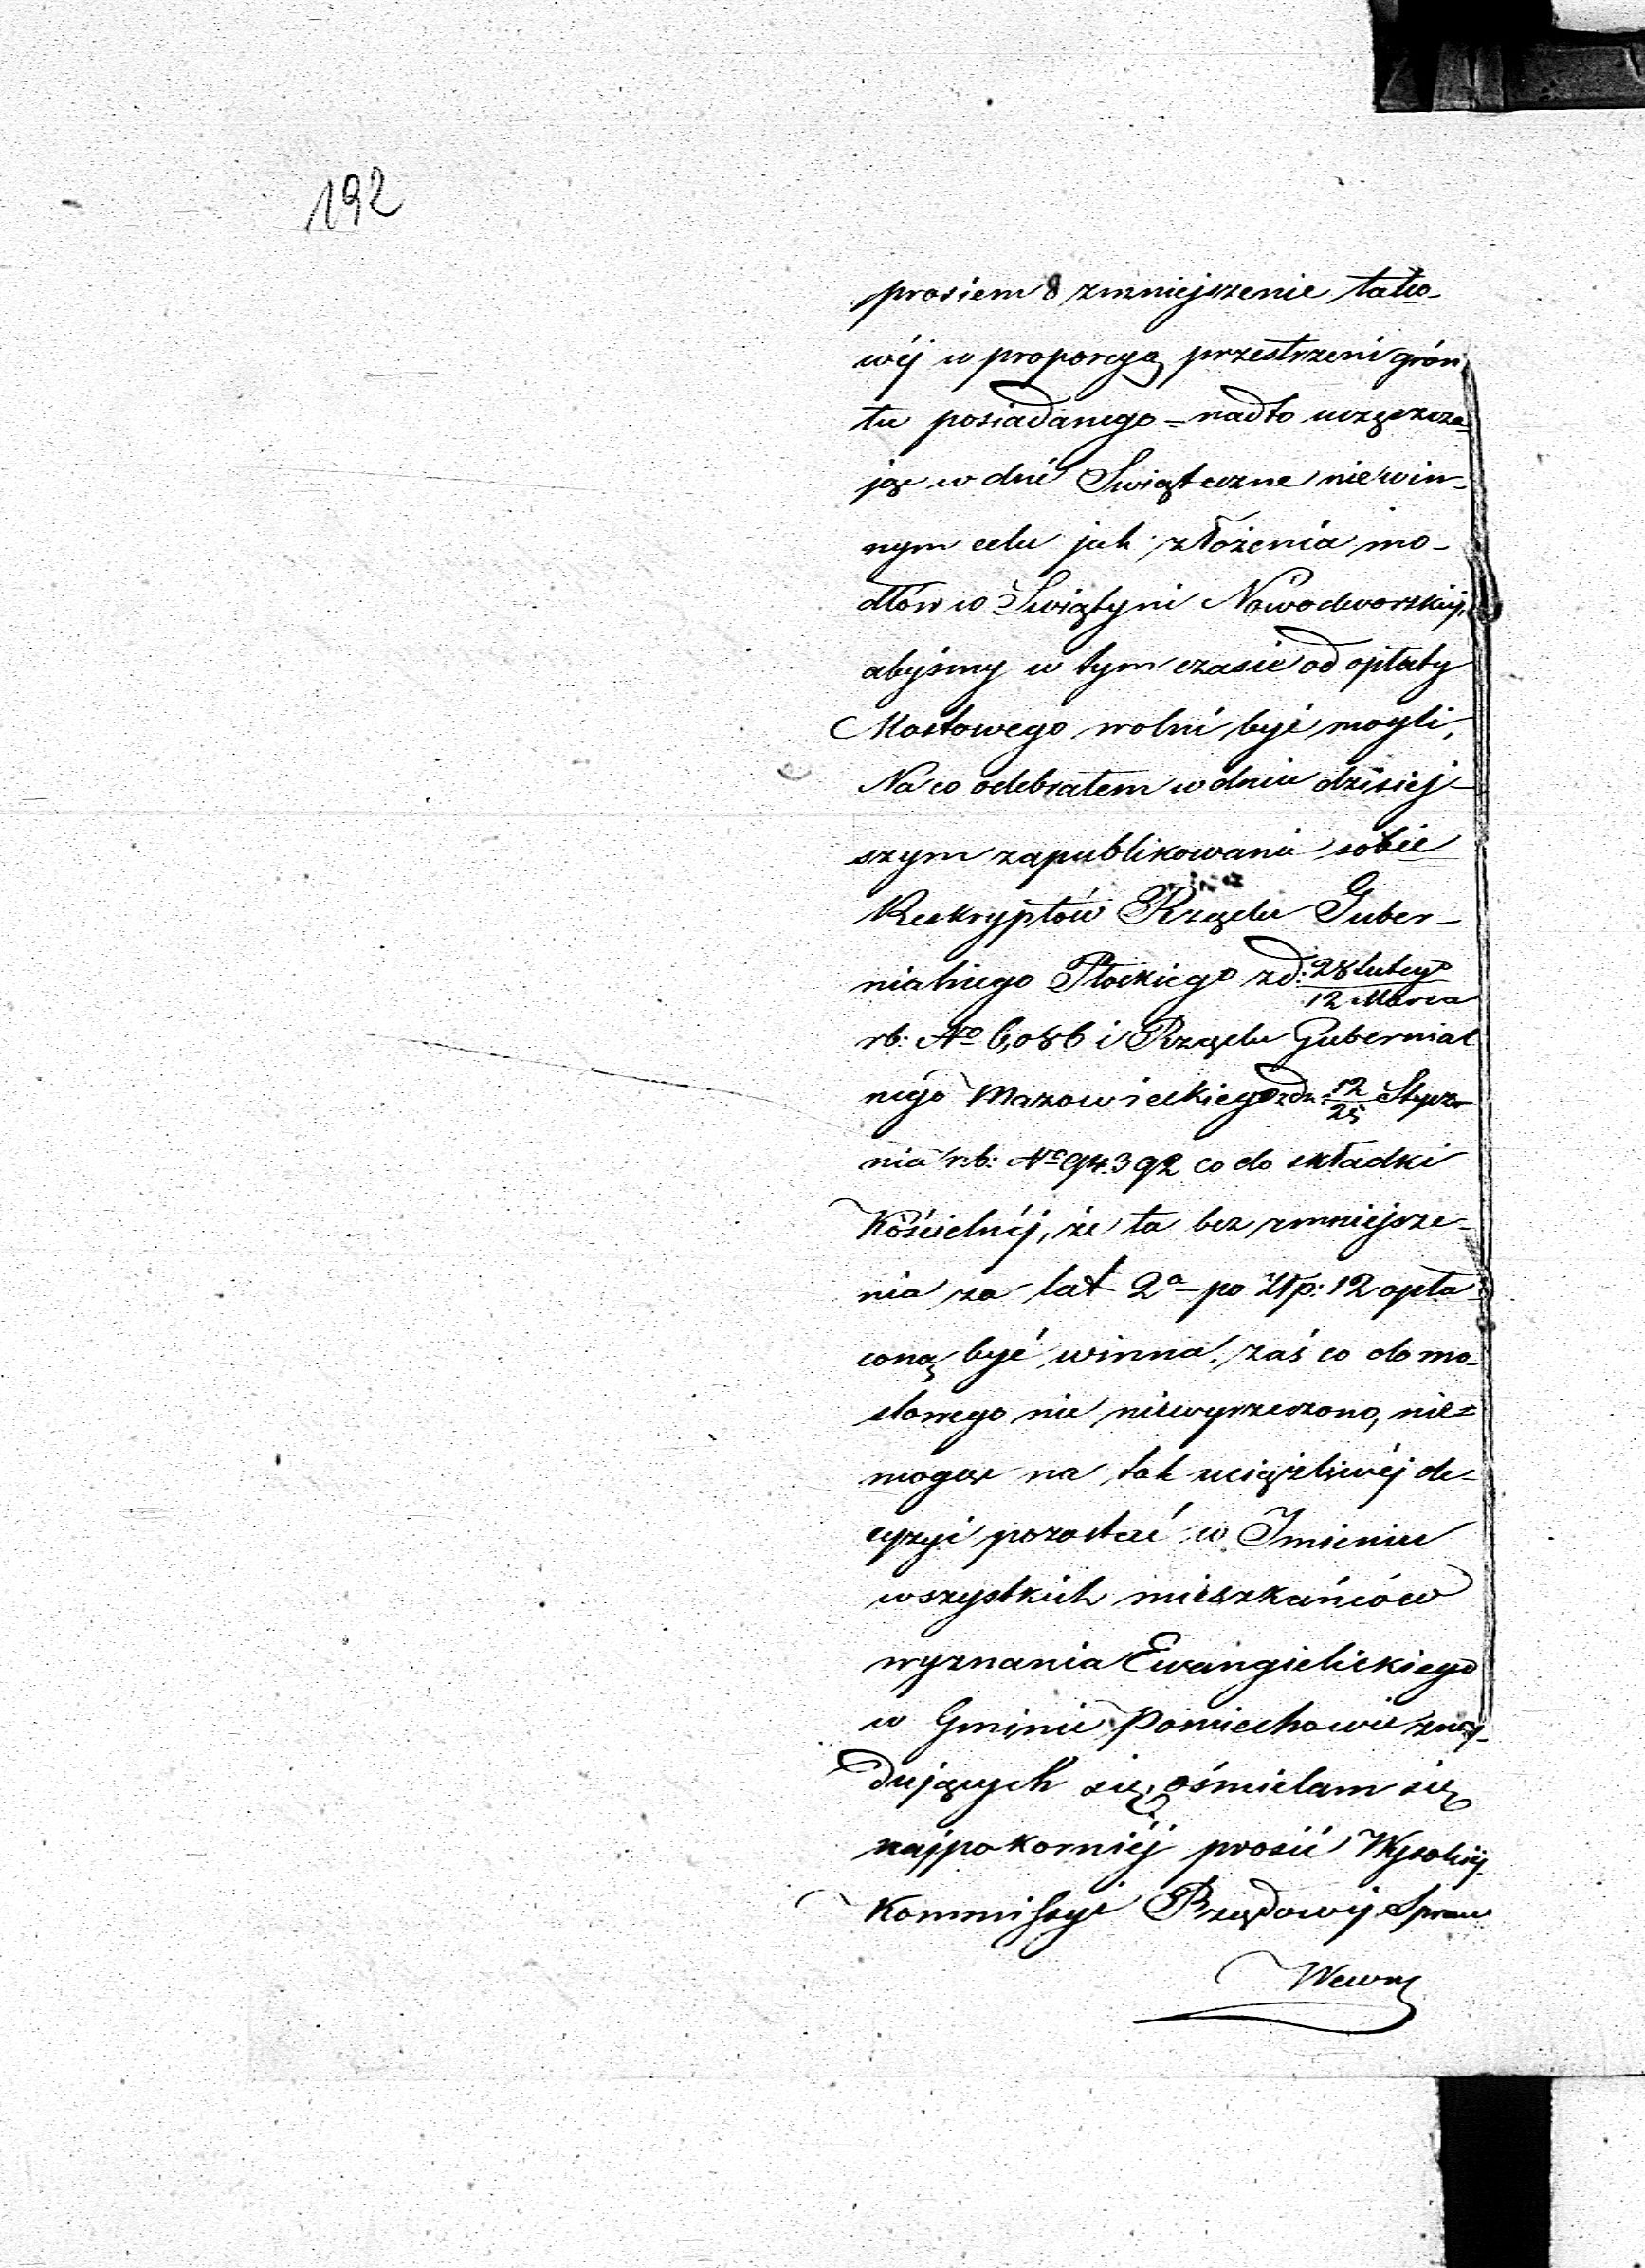 192
prosiem o zmniejszenie tako-
wéj w proporcyą przestrzeni grón
tu posiadanego – nadto uczęszcza-
jąc w dni Swiąteczne nie w in-
nym celu jak złożenia mo-
dłów w Swiątyni Nowodworskiej,
abyśmy w tym czasie od opłaty
Mostowego wolni być mogli,
Na co odebrałem w dniu dzisiej-
szym zapublikowanie sobie
Reskryptów Rządu Guber-
nialnego Płockiego z d: 28 Lutego/12 Marca
rb: No 6,086 i Rządu Gubernial
nego Mazowieckiego z dn: 12/25 Stycz-
nia r.b: No 94.392 co do składki
Kościelnéj, że ta bez zmniejsze-
nia za lat 2a po Złp: 12 opła
coną być winna, zaś co do mo-
stowego nic niewyrzeczono, nie=
mogąc na tak uciążliwéj de-
cyzyi pozostać w Imieniu
wszystkich mieszkańców
wyznania Ewangielickiego
w Gminie Pomiechowie znaj-
dujących się, ośmielam się
najpokorniéj prosić Wysokiéj
Kommissyi Rządowéj Spraw
Wewn